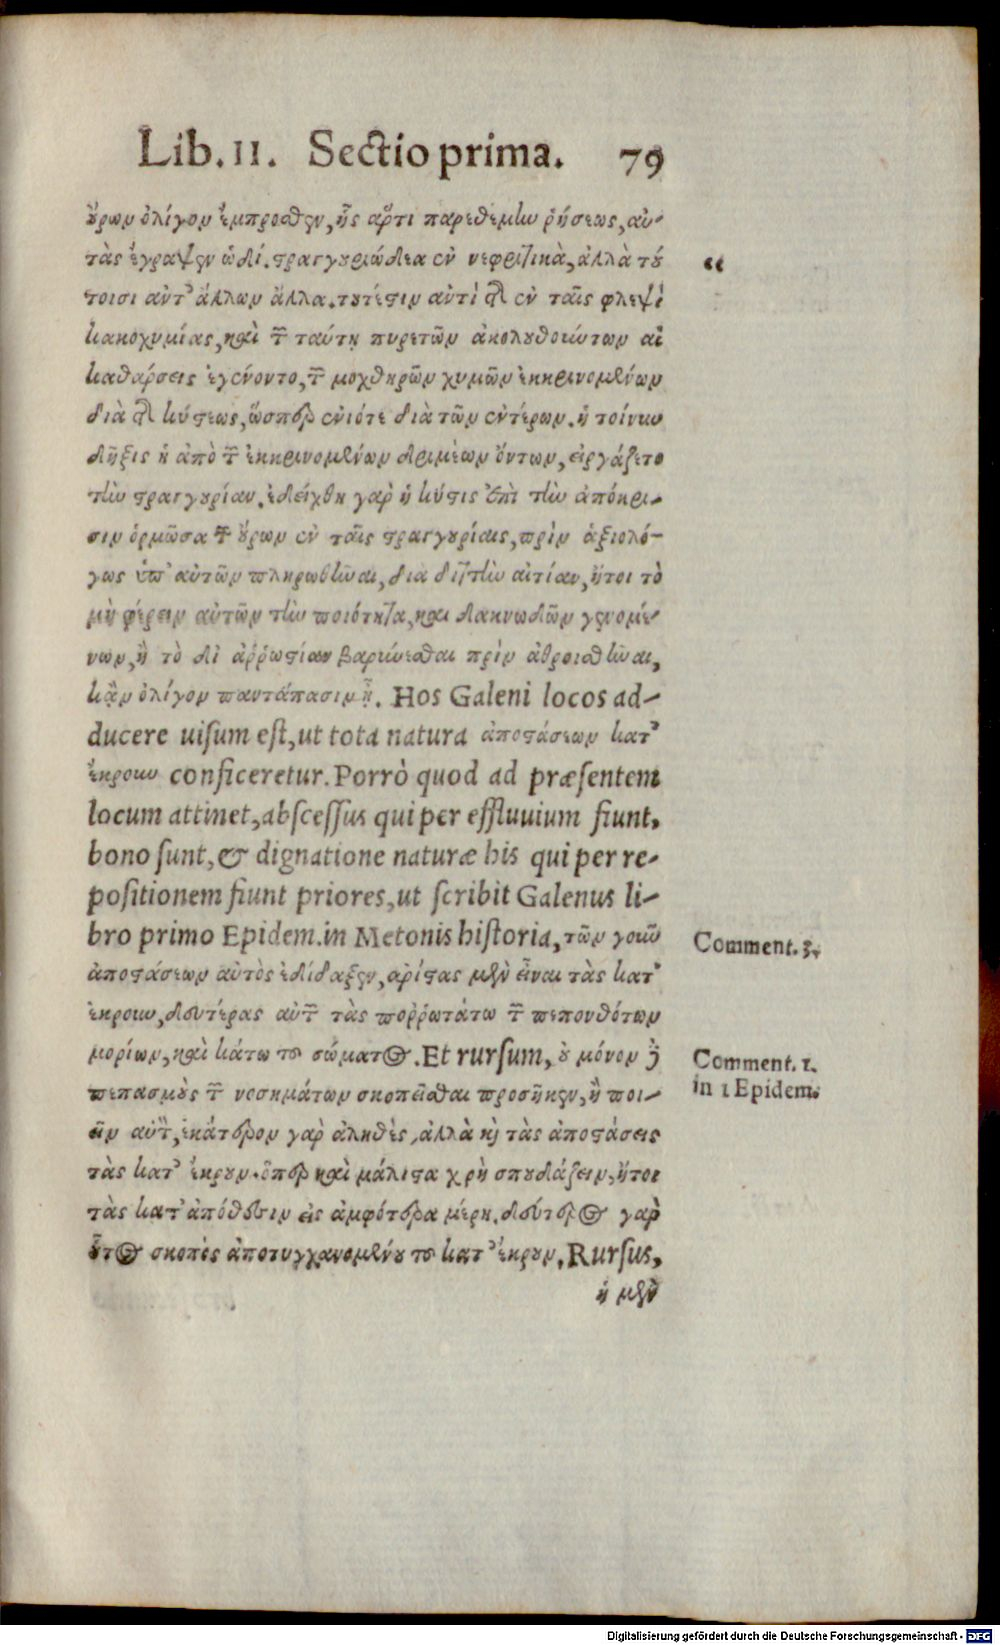 Lib. II. Sectio prima. 79
ὄρων ὀλίγον ἔμπροσθεν, ἧς ἄρτι παρεθέμην ῥήσεως, αὐ-
τὰς ἔγραψεν ὡδί. στραγγουριώδεα ἐν νεφριτικὰ, ἀλλὰ τού
“
τοισι ἀντ' ἄλλων ἄλλα. τουτέστιν ἀντὶ τῆς ἐν ταῖς φλεψὶ
κακοχυμίας, καὶ τῶν ταύτῃ πυρετῶν ἀκολουθούντων αἱ
καθάρσεις ἐγένοντο, τῶν μοχθηρῶν χυμῶν ἐκκρινομένων
διὰ τῆς κύστεως, ὥσπερ ἐνιότε διὰ τῶν ἐντέρων. ἡ τοίνυν
δῆξις ἡ ἀπὸ τῶν ἐκκρινομένων δριμέων ὄντων, εἰργάζετο
τὴν στραγγουρίαν. ἐδείχθη γὰρ ἡ κύστις ἐπὶ τὴν ἀπόκρι-
σιν ὁρμῶσα τῶν οὔρων ἐν ταῖς στραγγουρίαις, πρὶν ἀξιολό-
γως ὑπ' αὐτῶν πληρωθῆναι, διὰ διττὴν αἰτίαν, ἤτοι τὸ
μὴ φέρειν αὐτῶν τὴν ποιότητα, καὶ δακνωδῶν γενομέ-
νων, ἢ τὸ δι ἀῤῥωστίαν βαρύνεσθαι πρὶν ἀθροισθῆναι,
κἂν ὀλίγον παντάπασιν ᾖ. Hos Galeni locos ad-
ducere uisum est, ut tota natura ἀποστάσεων κατ'
ἔκρουν conficeretur. Porrò quod ad præsentem
locum attinet, abscessus qui per effluuium fiunt,
bono sunt, & dignatione naturæ his qui per re-
positionem fiunt priores, ut scribit Galenus li-
bro primo Epidem. in Metonis historia, τῶν γοῦν
Comment. 3.
ἀποστάσεων αὐτὸς ἐδίδαξεν, ἀρίστας μὲν εἶναι τὰς κατ'
ἔκρουν, δευτέρας αὖ τῶν τὰς ποῤῥωτάτω τῶν πεπονθότων
μορίων, καὶ κάτω τοῦ σώματος. Et rursum, οὐ μόνον δὲ
Comment. 1.
in 1 Epidem.
πεπασμοὺς τῶν νοσημάτων σκοπεῖσθαι προσῆκεν, ἢ ποι-
εῖν αὐτῶν, ἑκάτερον γὰρ ἀληθὲς, ἀλλὰ καὶ τὰς ἀποστάσεις
τὰς κατ' ἔκρουν. ὅπερ καὶ μάλιστα χρὴ σπουδάζειν, ἤτοι
τὰς κατ' ἀπόθεσιν εἰς ἀμφότερα μέρη. δεύτερος γὰρ
οὗτος σκοπὸς ἀποτυγχανομένου τοῦ κατ' ἔκρουν. Rursus,
ἡ μὲν
Digitalisierung gefördert durch die Deutsche Forschungsgemeinschaft - DFG